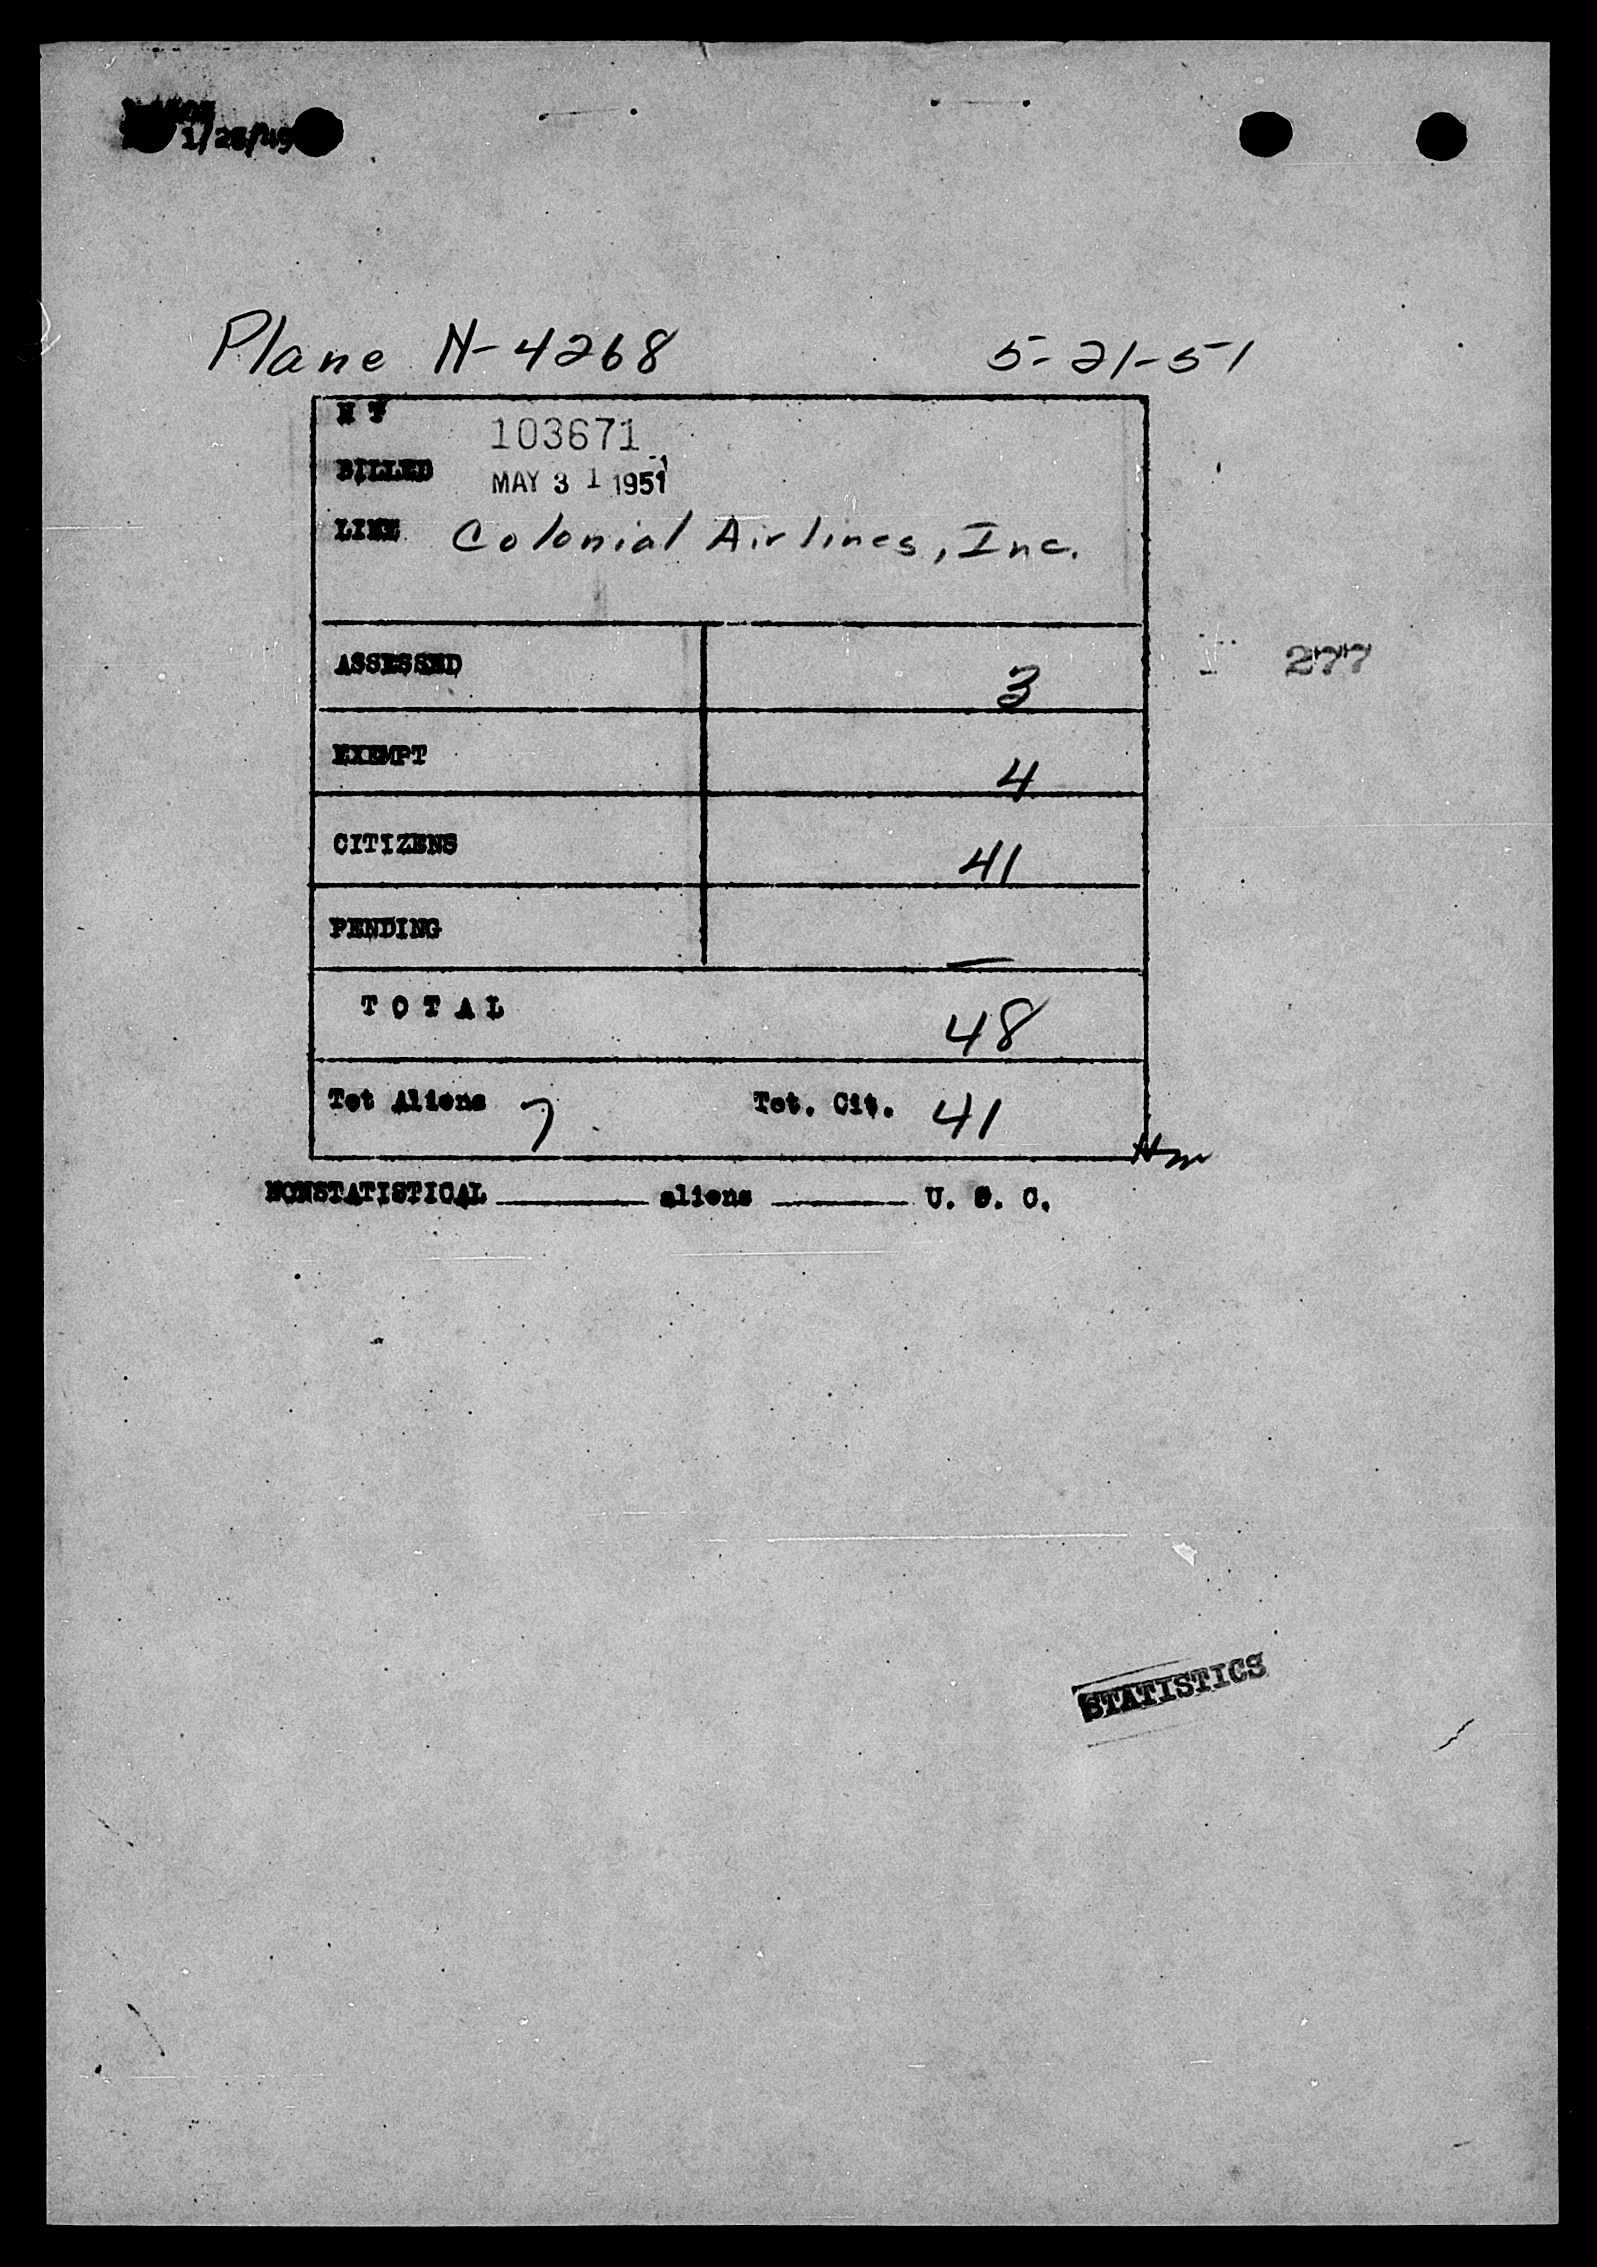 1/25/49
Plane N-4268 5-21-51
H T 103671
BILLED MAY 31 1951
LINE Colonial Airlines, Inc.
ASSESSED 3
277
EXEMPT 4
CITIZENS 41
PENDING —
TOTAL 48
Tot Aliens 7 Tot. Cit. 41
NONSTATISTICAL ________ aliens ________ U. S. C.
STATISTICS